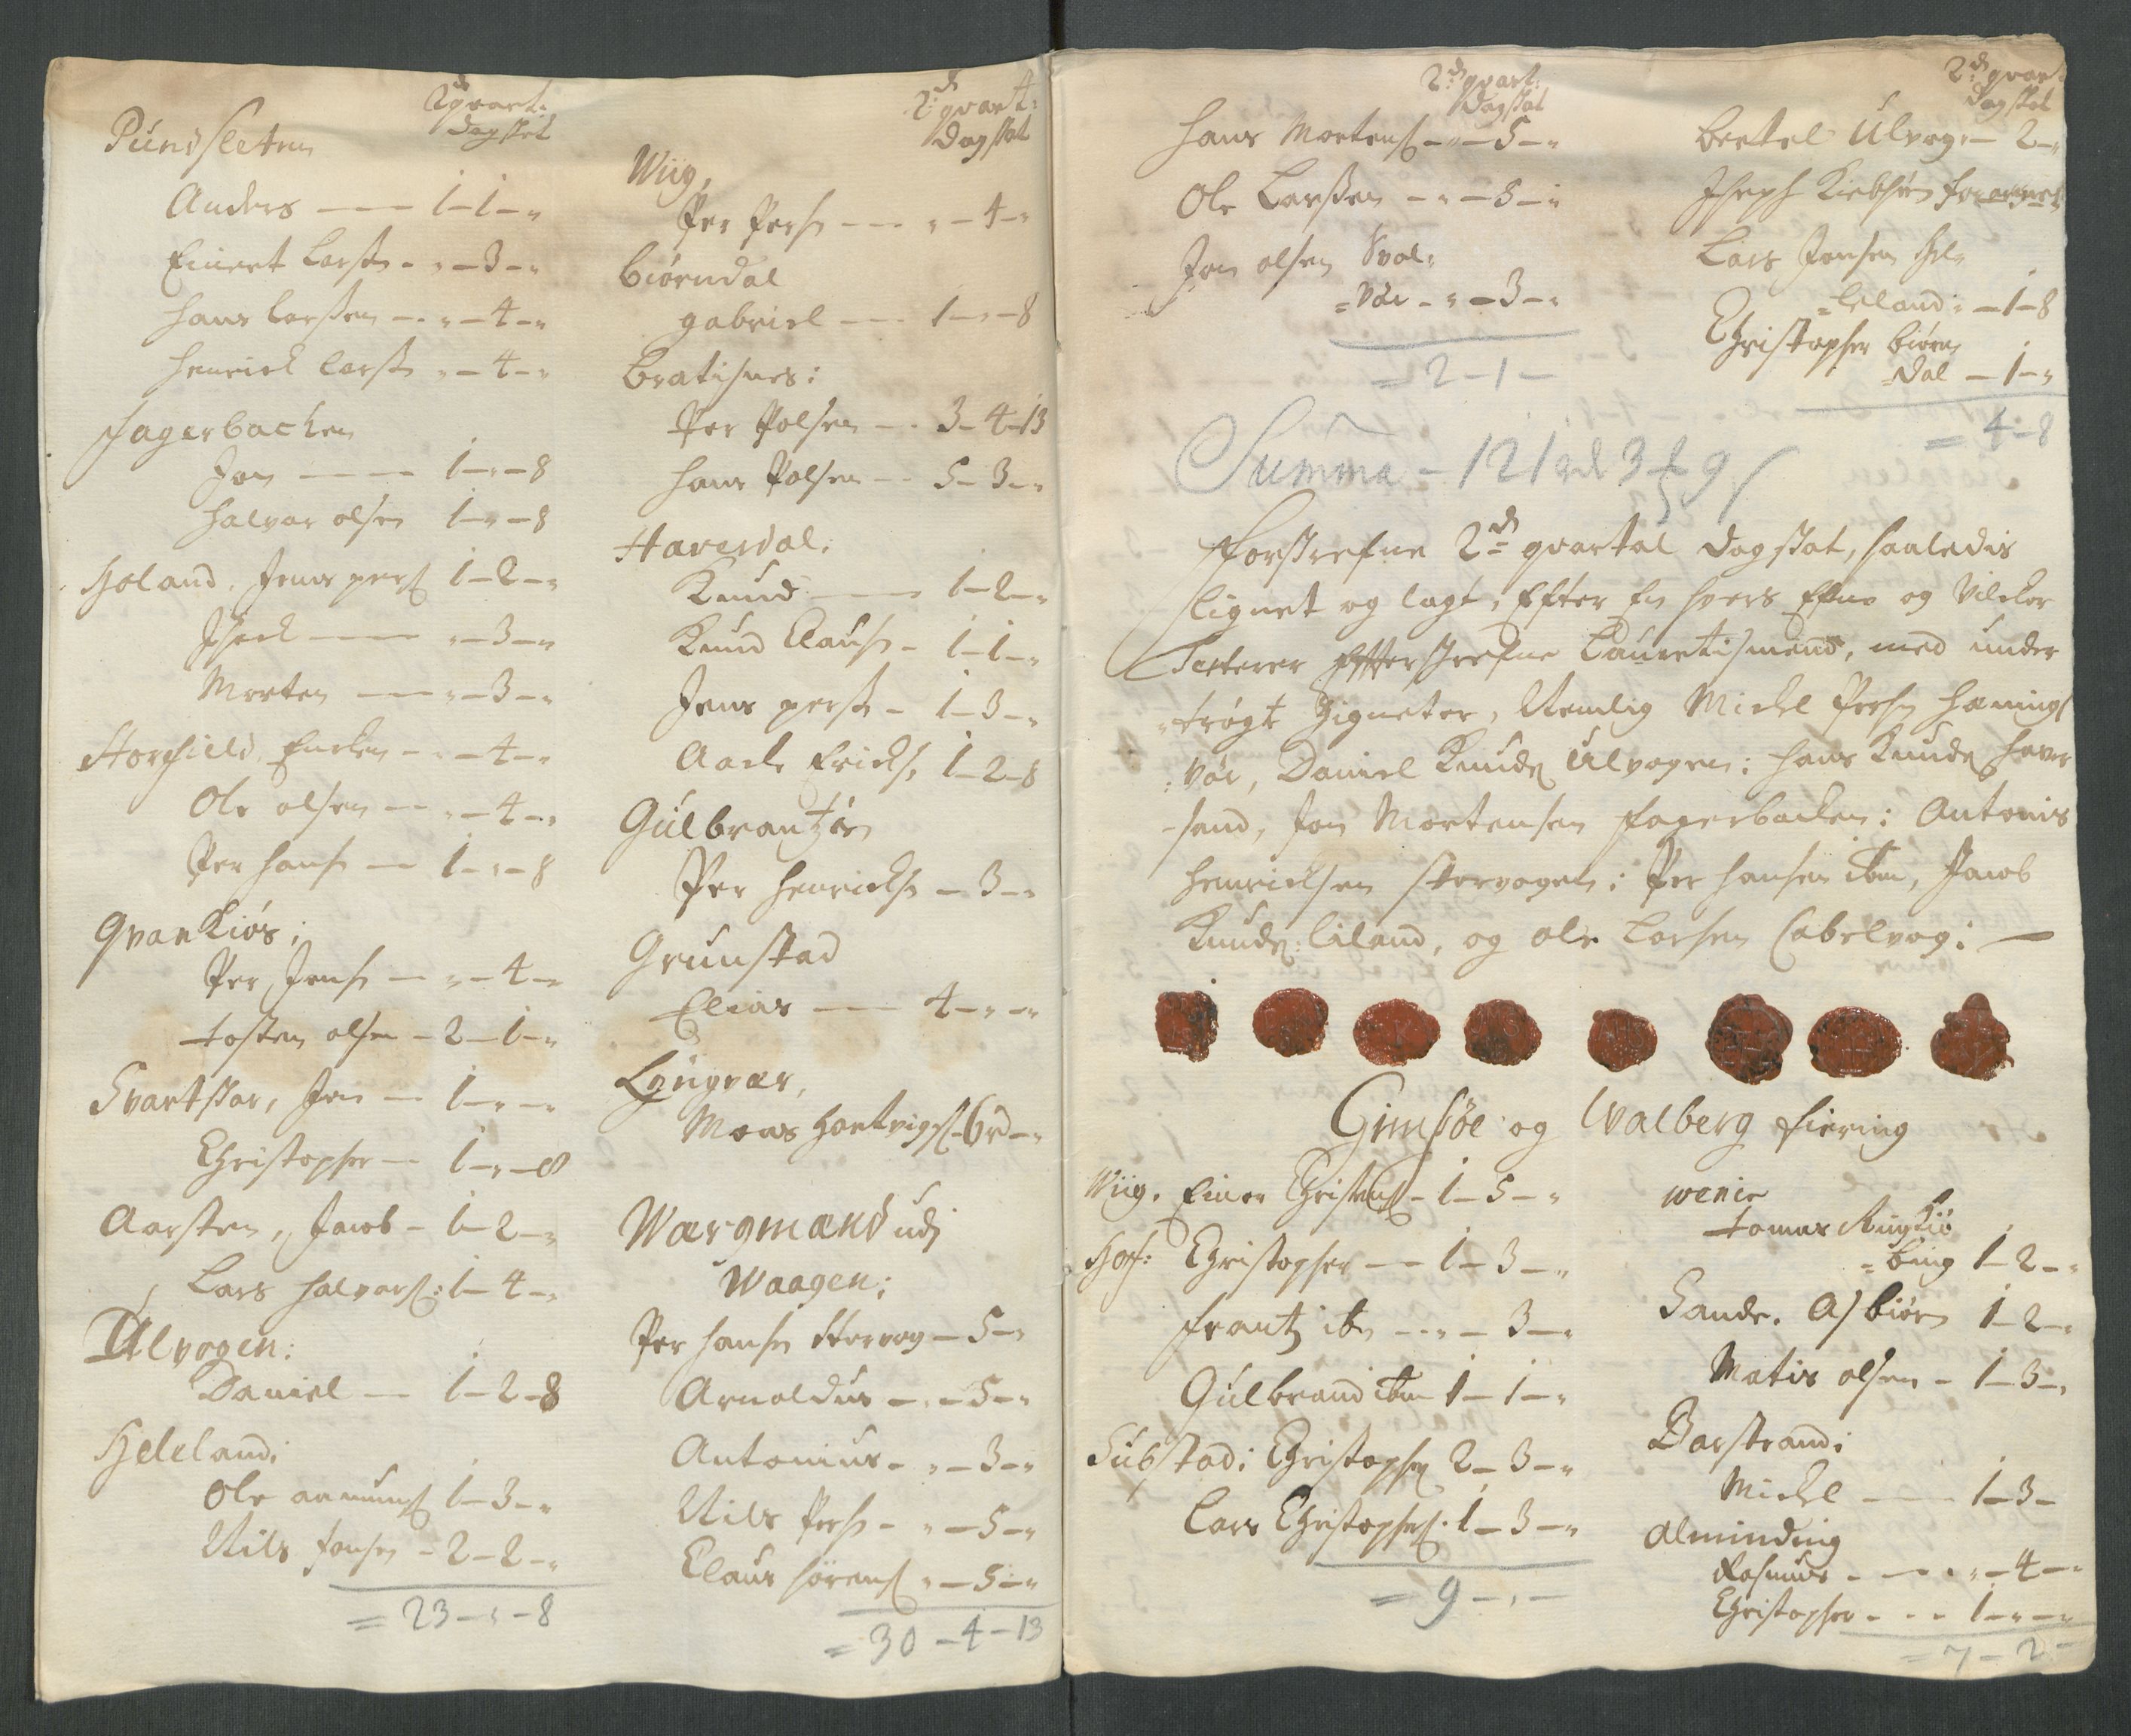 2d qvart:
dagskat
Pundsletten
Anders — 1-1-"
Einert Larss. - "-3-"
Hans Larssen - "-4-"
Henrich Larss "-4-"
Fagerbachen
Jon — 1-"-8
Halvor olsen 1-"-8
Holand. Jens pers 1-2-"
— "-3-"
Morten — "-3-"
Storfield. Encken - "-4-"
Ole olsen — "-4-"
Per Hans — 1-"-8
Qvankiös:
Per Jens — "-4-"
tosten olsen - 2-1-"
Svartskar, Jon — 1-"-"
Christopher — 1-"-8
Aarsten, Jacob - 1-2-"
Lars Halvors: 1-4-"
Ulvogen:
Daniel — 1-2-8
Heleland:
Ole 1-3-"
Nils Jonsen - 2-2-"
= 23-"-8
2d qvart:
dagskat
Wiig,
Per Pers — "-4-"
Biörndal
gabriel — 1-"-8
Bratisnes:
Per Polsen — 3-4-13
Hans Polsen — 5-3-"
Haversdal:
Knud — 1-2-"
Knud Claus - 1-1-"
Jens perss - 1-3-"
Aach Ericks. 1-2-8
Gulbrantzön
Per Henricks — 3-"
Grunstad
Elias — 4-"-"
Lyngvær,
Mons Hartvigs -
Wærgmænd udj
Waagen:
Per Hansen Storvog - 5-"
Arnoldus - "-5-"
Antonius - "-3-"
Nils Pers - "-5-"
Claus Sörens "-5-"
= 30-4-13
2d qvart:
dagskat
Hans Mortens - "-5-"
Ole Larssen - "-3-"
Jon olsen Svol-
=vær - "-3-"
= 2-1-
2d qvart
dagskat
Bertel Ulvog: - 2-"
Lars Jonsen Hel-
=leland: - 1-8
Christopher Biörn
=dal - 1-"
= 4-8
Summa - 121 rd 3 9
Forskrefne 2d qvartal dagskat, saaledis
lignet og lagt, Efter En hvers Efne og Vilckor
Testerer Efterskrefne Lauretismend, med under
trögt Zigneter, Nemlig Michel Persen Hanings
vær, Daniel Knuds Ulvogen: Hans Knuds Haver
-sand, Jon Mortensen Fagerbacken: Antonis
Henricksen Storvogen: Per Hansen ibm, Jacob
Knuds: Liland, og Ole Larsen Cabelvog: —
Gimsöe og Walberg fiering
Wiig. Einer Christens - 1-5-"
Hof: Christopher — 1-3-"
Frantz ibm - "-3-"
Gulbrand ibm 1-1-"
Substad: Christopher 2-3-"
Lars Christophers. 1-3-"
= 9-"-
wenie
tomas Ringkiö
=bing 1-2-"
Sande. Asbiörn 1-2-"
Matis olsen - 1-3-"
Barstrand:
Michel — 1-3-
Alminding
Rasmus - "-4-"
Christopher - 1-"-"
= 7-2-